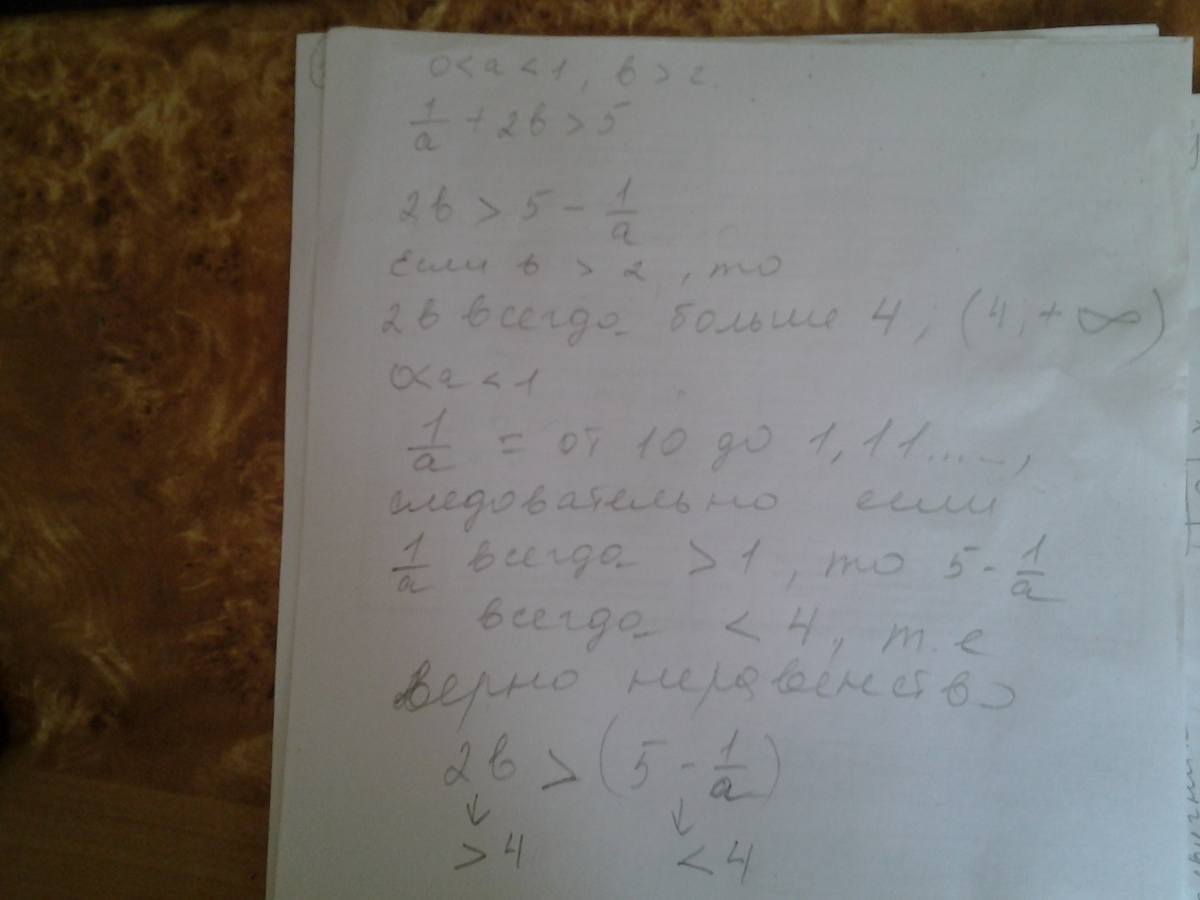 0<a<1, в>2
1/a + 2в > 5
2в > 5 - 1/a
если в > 2, то
2в всегда больше 4, (4; +∞)
0<a<1
1/a = от 10 до 1,11.....,
следовательно если
1/a всегда >1, то 5 - 1/a
всегда < 4, т.е
верно неравенство
2в > (5 - 1/a)
↓ ↓
>4 <4